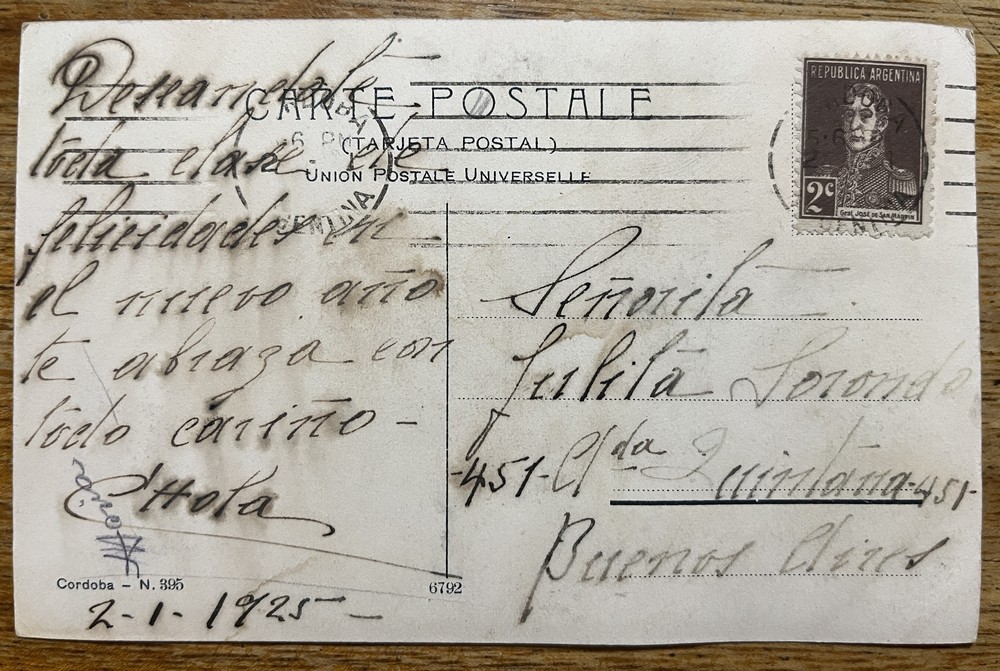 CARTE POSTALE
(TARJETA POSTAL)
UNION POSTALE UNIVERSELLE
REPUBLICA ARGENTINA
2c
Gral. JOSÉ DE SAN MARTIN
Deseandole
toda clase de
felicidades en
el nuevo año
te abraza con
todo cariño -
Señorita
Julita Sorondo
-451- Avda Quintana-451-
Buenos Aires
Cordoba - N. 395
6792
2-1-1925-